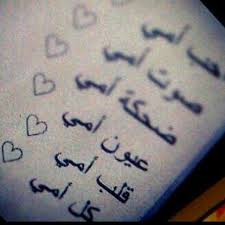 احب أمي
صوت أمي
ضحكة أمي
عيون أمي
قلب أمي
كل أمي